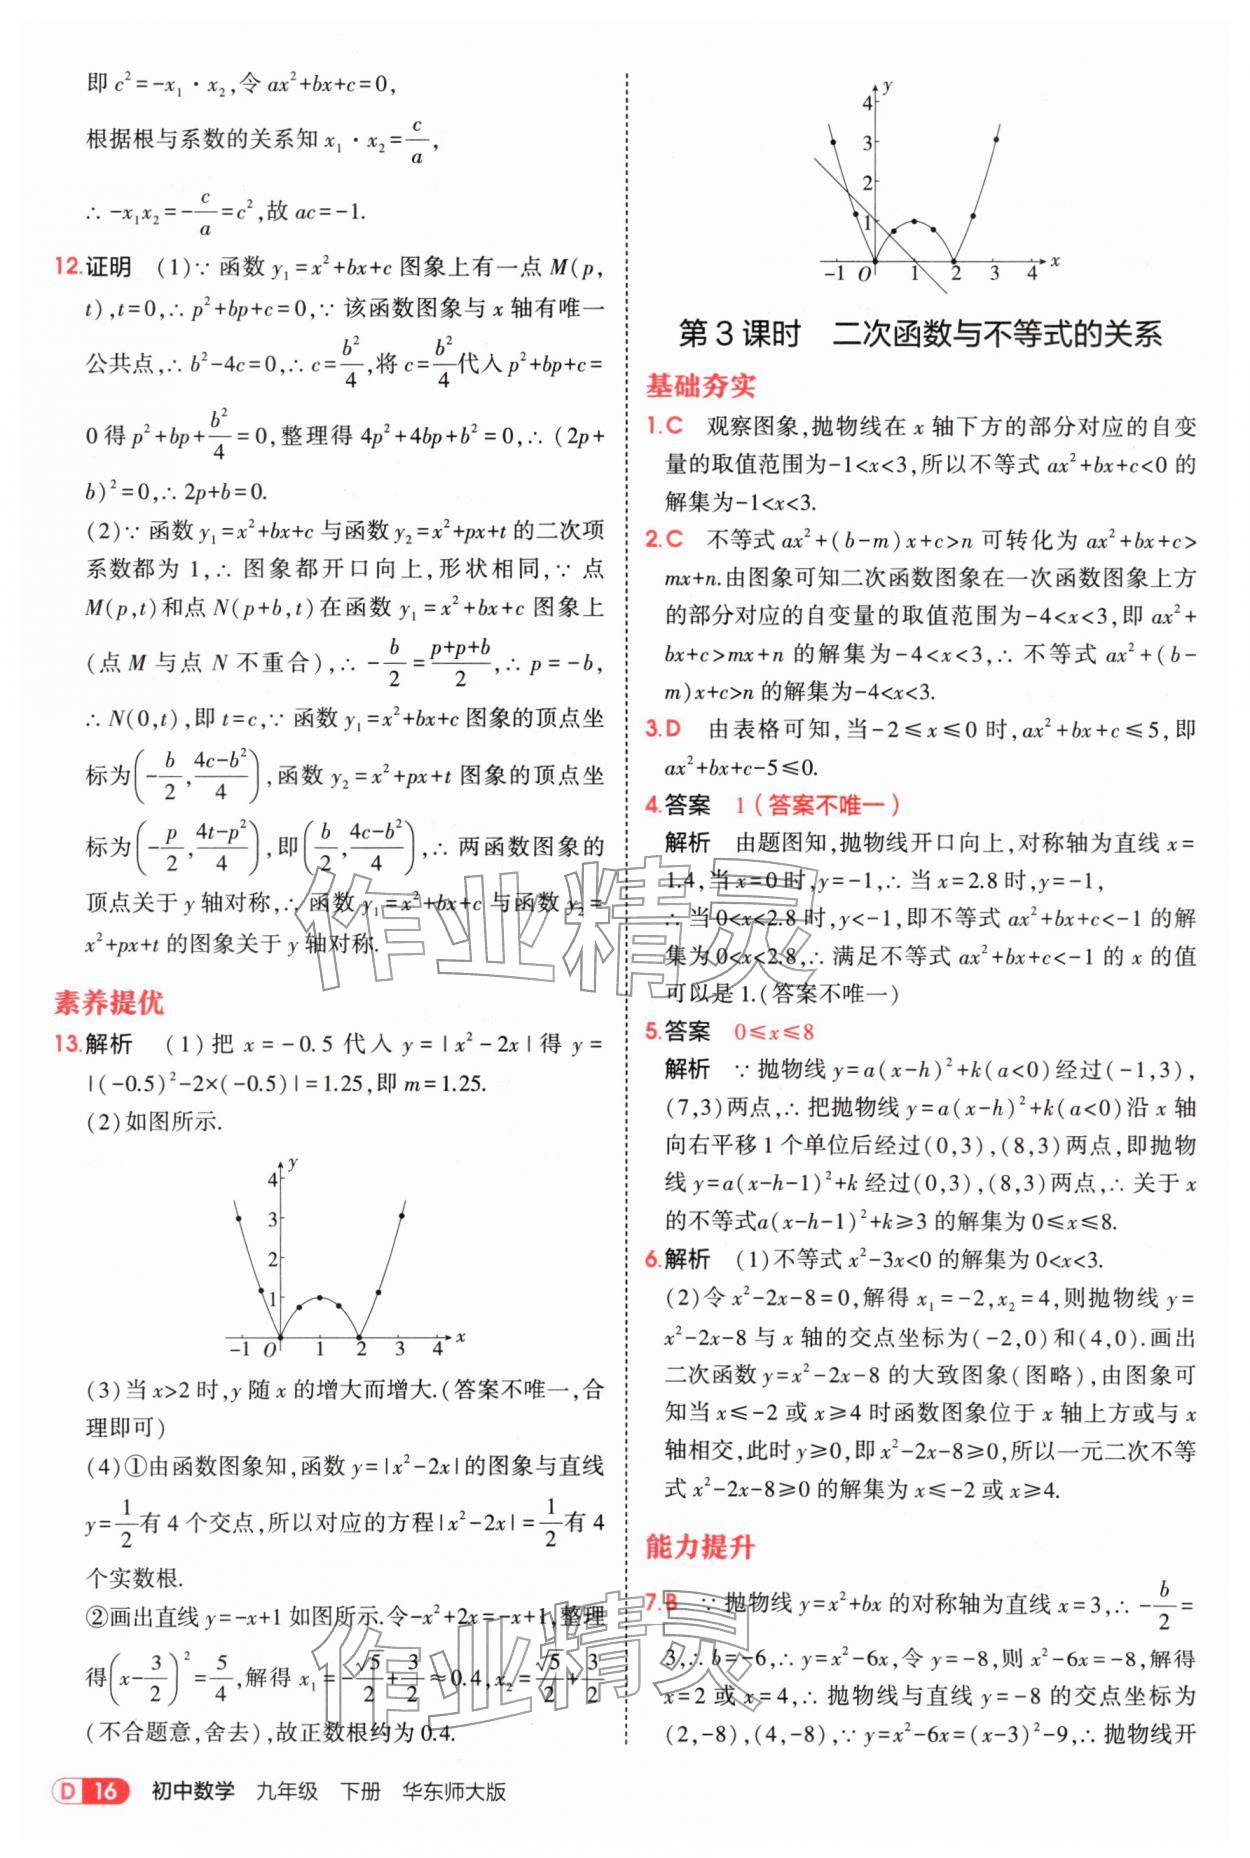 即 c²=-x₁·x₂,令 ax²+bx+c=0,
根据根与系数的关系知 x₁·x₂=c/a,
∴ -x₁x₂=-c/a=c²,故 ac=-1.
12.证明 (1)∵ 函数 y₁=x²+bx+c 图象上有一点 M(p,
t),t=0,∴ p²+bp+c=0,∵ 该函数图象与 x 轴有唯一
公共点,∴ b²-4c=0,∴ c=b²/4,将 c=b²/4代入 p²+bp+c=
0 得 p²+bp+b²/4=0,整理得 4p²+4bp+b²=0,∴ (2p+
b)²=0,∴ 2p+b=0.
(2)∵ 函数 y₁=x²+bx+c 与函数 y₂=x²+px+t 的二次项
系数都为 1,∴ 图象都开口向上,形状相同,∵ 点
M(p,t)和点 N(p+b,t)在函数 y₁=x²+bx+c 图象上
(点 M 与点 N 不重合),∴ -b/2=(p+p+b)/2,∴ p=-b,
∴ N(0,t),即 t=c,∵ 函数 y₁=x²+bx+c 图象的顶点坐
标为(-b/2,(4c-b²)/4),函数 y₂=x²+px+t 图象的顶点坐
标为(-p/2,(4t-p²)/4),即(b/2,(4c-b²)/4),∴ 两函数图象的
顶点关于 y 轴对称,∴ 函数 y₁=x²+bx+c 与函数 y₂=
x²+px+t 的图象关于 y 轴对称.
素养提优
13.解析 (1)把 x=-0.5 代入 y=|x²-2x|得 y=
|(-0.5)²-2×(-0.5)|=1.25,即 m=1.25.
(2)如图所示.
y
4
3
2
1
-1 O 1 2 3 4 x
(3)当 x>2 时,y 随 x 的增大而增大.(答案不唯一,合
理即可)
(4)①由函数图象知,函数 y=|x²-2x|的图象与直线
y=1/2有 4 个交点,所以对应的方程|x²-2x|=1/2有 4
个实数根.
②画出直线 y=-x+1 如图所示.令-x²+2x=-x+1,整理
得(x-3/2)²=5/4,解得 x₁=-√5/2+3/2≈0.4,x₂=√5/2+3/2
(不合题意,舍去),故正数根约为 0.4.
D 16 初中数学 九年级 下册 华东师大版
y
4
3
2
1
-1 O 1 2 3 4 x
第 3 课时 二次函数与不等式的关系
基础夯实
1.C 观察图象,抛物线在 x 轴下方的部分对应的自变
量的取值范围为-1<x<3,所以不等式 ax²+bx+c<0 的
解集为-1<x<3.
2.C 不等式 ax²+(b-m)x+c>n 可转化为 ax²+bx+c>
mx+n.由图象可知二次函数图象在一次函数图象上方
的部分对应的自变量的取值范围为-4<x<3,即 ax²+
bx+c>mx+n 的解集为-4<x<3,∴ 不等式 ax²+(b-
m)x+c>n 的解集为-4<x<3.
3.D 由表格可知,当-2≤x≤0 时,ax²+bx+c≤5,即
ax²+bx+c-5≤0.
4.答案 1(答案不唯一)
解析 由题图知,抛物线开口向上,对称轴为直线 x=
1.4,当 x=0 时,y=-1,∴ 当 x=2.8 时,y=-1,
∴ 当 0<x<2.8 时,y<-1,即不等式 ax²+bx+c<-1 的解
集为 0<x<2.8,∴ 满足不等式 ax²+bx+c<-1 的 x 的值
可以是 1.(答案不唯一)
5.答案 0≤x≤8
解析 ∵ 抛物线 y=a(x-h)²+k(a<0)经过(-1,3),
(7,3)两点,∴ 把抛物线 y=a(x-h)²+k(a<0)沿 x 轴
向右平移 1 个单位后经过(0,3),(8,3)两点,即抛物
线 y=a(x-h-1)²+k 经过(0,3),(8,3)两点,∴ 关于 x
的不等式a(x-h-1)²+k≥3 的解集为 0≤x≤8.
6.解析 (1)不等式 x²-3x<0 的解集为 0<x<3.
(2)令 x²-2x-8=0,解得 x₁=-2,x₂=4,则抛物线 y=
x²-2x-8 与 x 轴的交点坐标为(-2,0)和(4,0).画出
二次函数 y=x²-2x-8 的大致图象(图略),由图象可
知当 x≤-2 或 x≥4 时函数图象位于 x 轴上方或与 x
轴相交,此时 y≥0,即 x²-2x-8≥0,所以一元二次不等
式 x²-2x-8≥0 的解集为 x≤-2 或 x≥4.
能力提升
7.B ∵ 抛物线 y=x²+bx 的对称轴为直线 x=3,∴ -b/2=
3,∴ b=-6,∴ y=x²-6x,令 y=-8,则 x²-6x=-8,解得
x=2 或 x=4,∴ 抛物线与直线 y=-8 的交点坐标为
(2,-8),(4,-8),∵ y=x²-6x=(x-3)²-9,∴ 抛物线开
作业精灵
作业精灵